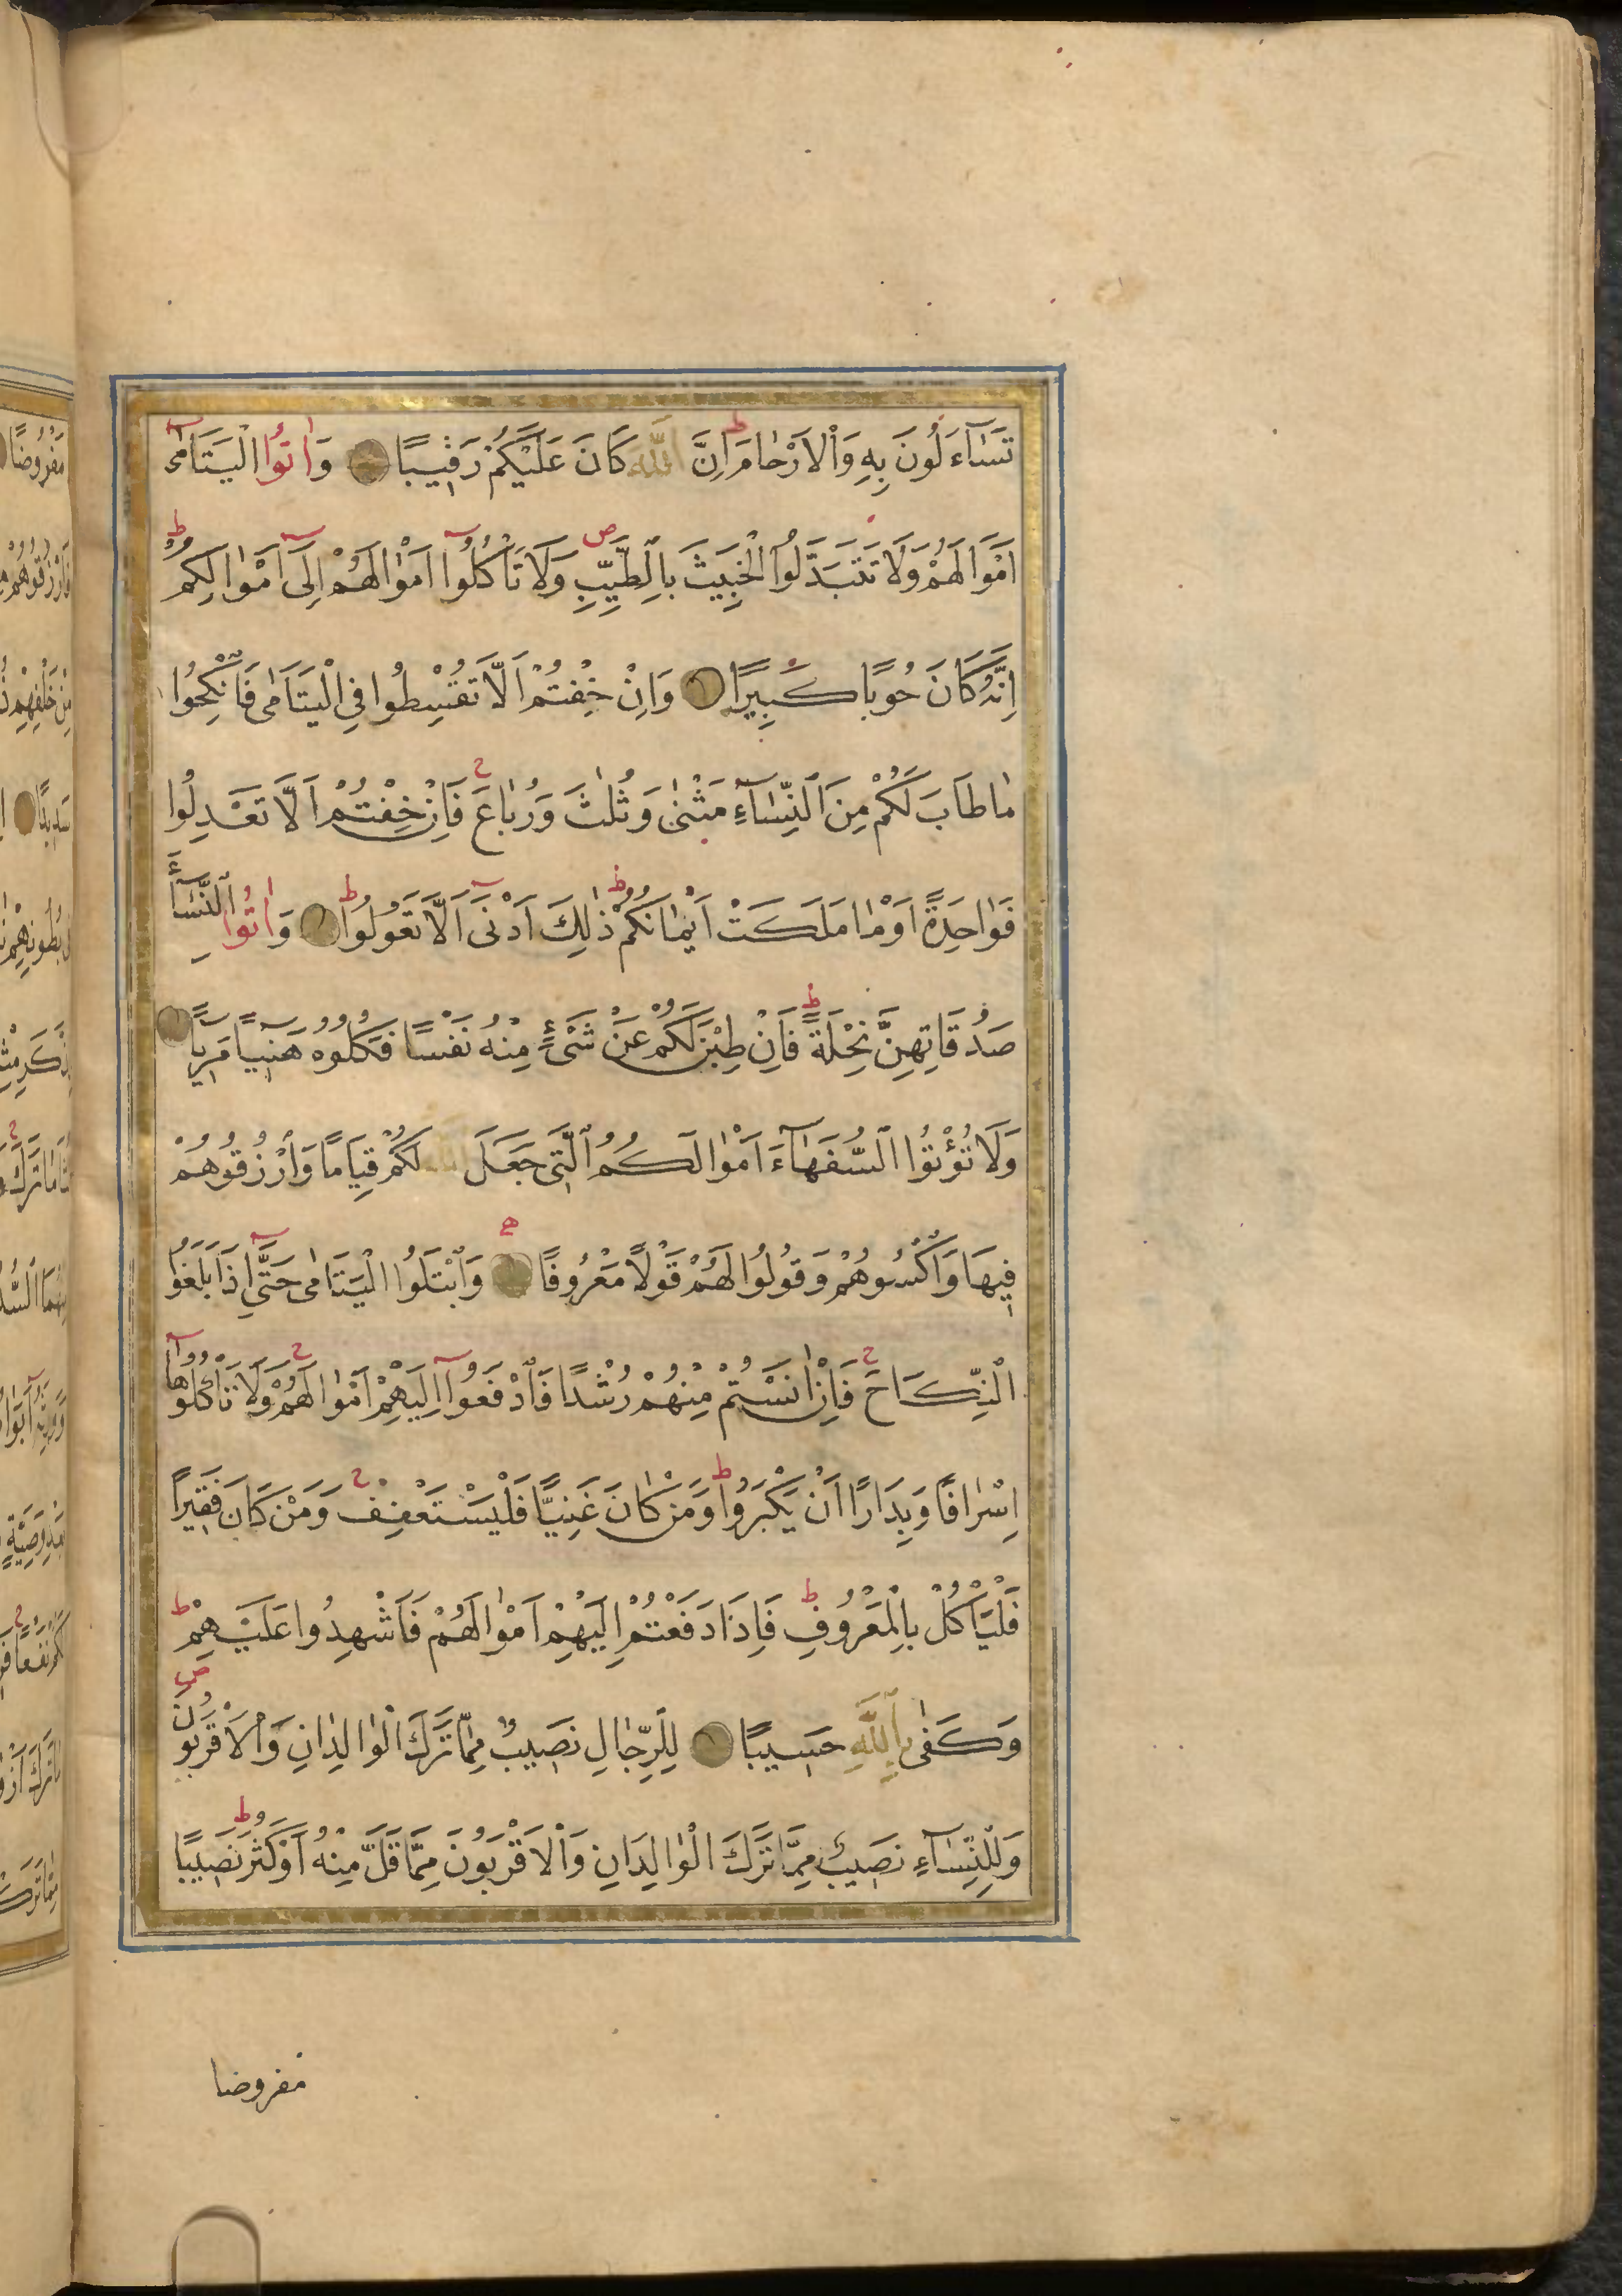 تَسَآءَلُونَ بِهِ وَالْاَرْحَامَ اِنَّ اللّٰهَ كَانَ عَلَيْكُمْ رَقِيبًا وَاٰتُوا الْيَتَامٰى
اَمْوَالَهُمْ وَلَا تَتَبَدَّلُوا الْخَبِيثَ بِالطَّيِّبِ وَلَا تَأْكُلُوا اَمْوَالَهُمْ اِلٰى اَمْوَالِكُمْ
اِنَّهُ كَانَ حُوبًا كَبِيرًا وَاِنْ خِفْتُمْ اَلَّا تُقْسِطُوا فِى الْيَتَامٰى فَانْكِحُوا
مَا طَابَ لَكُمْ مِنَ النِّسَآءِ مَثْنٰى وَثُلٰثَ وَرُبَاعَ فَاِنْ خِفْتُمْ اَلَّا تَعْدِلُوا
فَوَاحِدَةً اَوْ مَا مَلَكَتْ اَيْمَانُكُمْ ذٰلِكَ اَدْنٰى اَلَّا تَعُولُوا وَاٰتُوا النِّسَآءَ
صَدُقَاتِهِنَّ نِحْلَةً فَاِنْ طِبْنَ لَكُمْ عَنْ شَىْءٍ مِنْهُ نَفْسًا فَكُلُوهُ هَنِيئًا مَرِيئًا
وَلَا تُؤْتُوا السُّفَهَآءَ اَمْوَالَكُمُ الَّتِى جَعَلَ اللّٰهُ لَكُمْ قِيَامًا وَارْزُقُوهُمْ
فِيهَا وَاكْسُوهُمْ وَقُولُوا لَهُمْ قَوْلًا مَعْرُوفًا وَابْتَلُوا الْيَتَامٰى حَتّٰى اِذَا بَلَغُوا
النِّكَاحَ فَاِنْ اٰنَسْتُمْ مِنْهُمْ رُشْدًا فَادْفَعُوا اِلَيْهِمْ اَمْوَالَهُمْ وَلَا تَأْكُلُوهَا
اِسْرَافًا وَبِدَارًا اَنْ يَكْبَرُوا وَمَنْ كَانَ غَنِيًّا فَلْيَسْتَعْفِفْ وَمَنْ كَانَ فَقِيرًا
فَلْيَأْكُلْ بِالْمَعْرُوفِ فَاِذَا دَفَعْتُمْ اِلَيْهِمْ اَمْوَالَهُمْ فَاَشْهِدُوا عَلَيْهِمْ
وَكَفٰى بِاللّٰهِ حَسِيبًا لِلرِّجَالِ نَصِيبٌ مِمَّا تَرَكَ الْوَالِدَانِ وَالْاَقْرَبُونَ
وَلِلنِّسَآءِ نَصِيبٌ مِمَّا تَرَكَ الْوَالِدَانِ وَالْاَقْرَبُونَ مِمَّا قَلَّ مِنْهُ اَوْ كَثُرَ نَصِيبًا
مفروضا